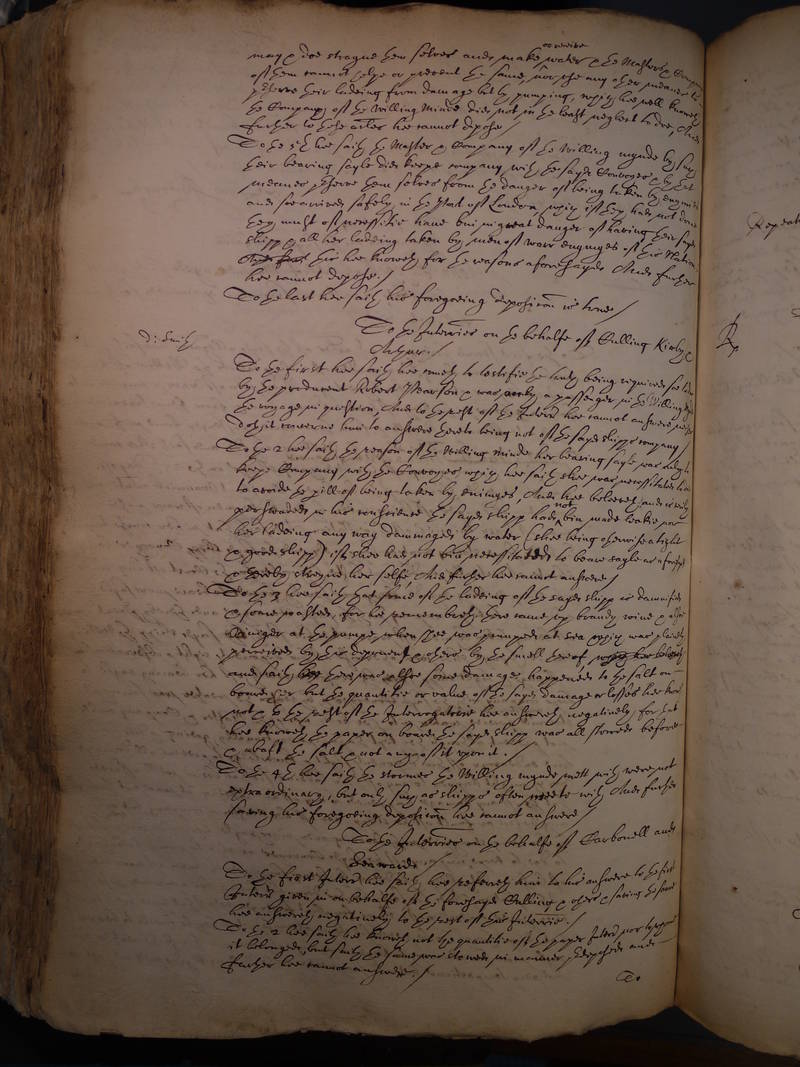 or receive
may & doe strayne them selves and make water & the Masters & Company
of them cannot helpe or prevent the same, nor use any other meanes to
preserve their ladeing from damage but by pumping, which hee well knoweth
the Company of the Willing Minde did not in the least neglect to doe, And
further to these articles hee cannot depose /
To the 5th hee saith the Master & Company of the Willing mynde by such
their bearing sayle did keepe company with the sayd Convoyes & by that
meanes preserve them selves from the danger of being taken by enymies
and soe arrived safely in the Port of London, which if they had not done
they must of necessitie have bin in great danger of haveing their sayd
shipp & all her ladeing taken by men of warr enymyes of this Nation
this hee knoweth for the reasons aforesayd And further
hee cannot depose. /
To the last hee saith his foregoeing deposition is true /
To the Interries on the behalfe of Culling Kirby &
Arthur. /
D: Smith
To the first hee saith hee cometh to testifie the truth being required soe to doe
by the producent Robert Pearson & was only a passenger in the Willing Mynde
the voyage in question, And to the rest of the Interrie hee cannot answere
doth it concerne him to answere hereto being not of the sayd shipps company /
To the 2 hee saith the reason of the Willing Minde her bearing sayle was to
keepe Company with the Convoyes which hee saith shee was necessitated to doe
to avoide the perill of being taken by Enimies, And hee beleeveth and is verily
perswaded in his conscience the sayd shipp had not bin made leakie nor
her ladeing any way dammaged by water (shee being otherwise a tight
& good shipp) if shee had not bin necessitated to beare sayle as aforesayd
& thereby streyne her selfe And further hee cannot answere /
To the 3 hee saith that some of the ladeing of the sayd shipp is damnified
& some wasted, for hee remembreth there came up brandy wine &
viniger at the pumpe when shee was pumped at sea which was plainely
perceived by this deponent & others by the smell thereof
and saith there was alsoe some damage happened to the salt on
board her but the quantitie or value of the sayd damage or losses hee knoweth
not & to the rest of the Interrogatorie hee answereth negatively, for that
hee knoweth the paper on board the sayd shipp was all stowed before
& abaft the salt & not any of it upon it. /
To the 4th hee saith the stormes the Willing mynde mett with were not
extraordinary, but only such as shipps often meete with And further
saving his foregoeing deposition hee cannot answere /
To the Interries on the behalfe of Carbonell and
Seaward. /
To the first Interrie hee saith hee referreth him to his answere to the first
Interrie given in on behalfe of the foresayd Culling & others & saving the same
hee answereth negatively to the rest of this Interrie. /
To the 2 hee saith hee knoweth not the quantitie of the paper Interrate nor to whome
it belonged, but saith the same was stowed in manner predeposed and
further hee cannot answere. /
To
Repeated